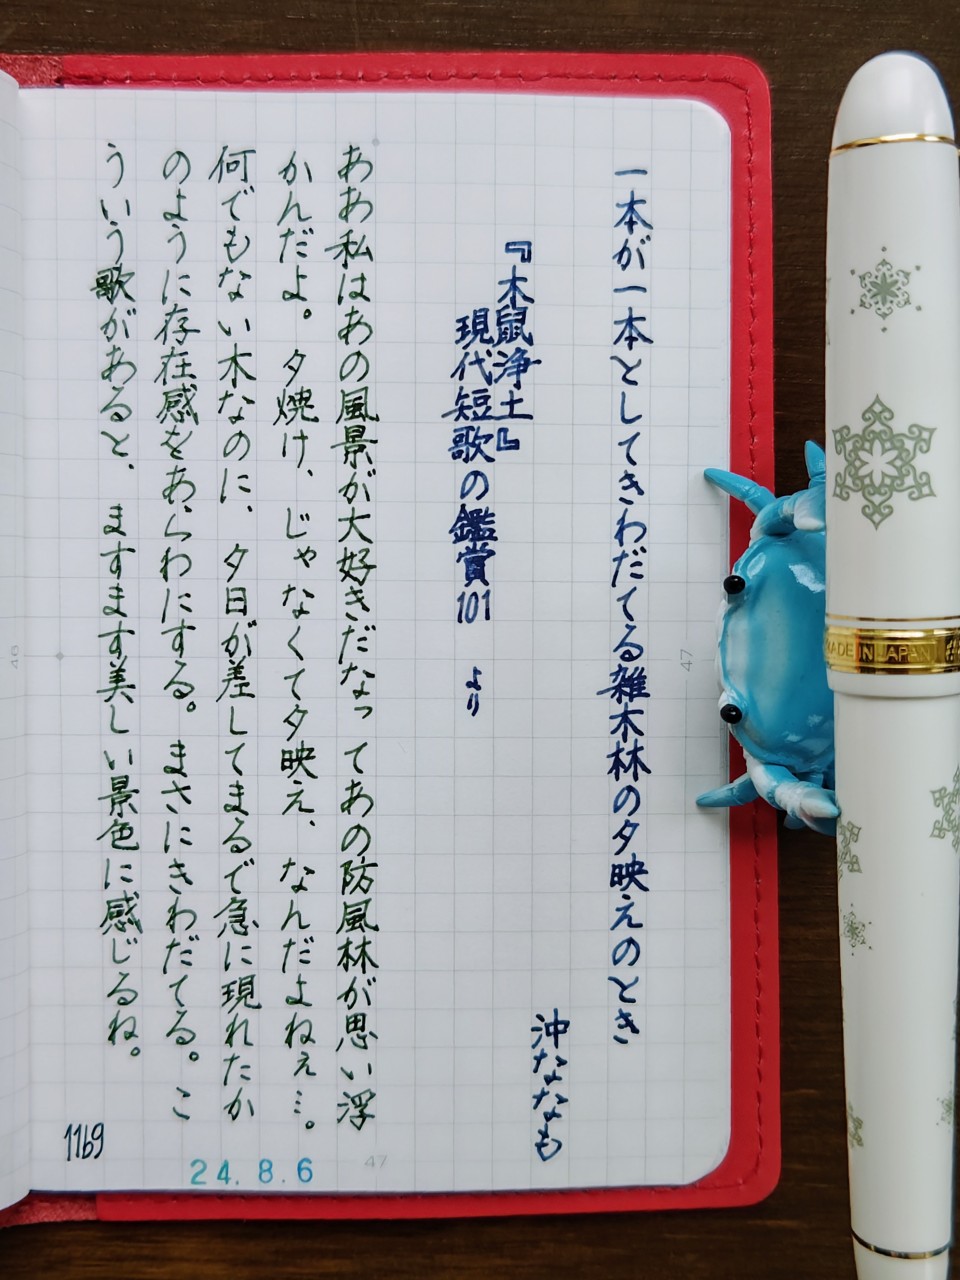 一本が一本としてきわだてる雑木林の夕映えのとき
沖ななも
『木鼠浄土』
現代短歌の鑑賞101 より
ああ私はあの風景が大好きだなってあの防風林が思い浮
かんだよ。夕焼け、じゃなくて夕映え、なんだよねぇ…。
何でもない木なのに、夕日が差してまるで急に現れたか
のように存在感をあらわにする。まさにきわだてる。こ
ういう歌があると、ますます美しい景色に感じるね。
1169
24.8.6
47
47
46
MADE IN JAPAN